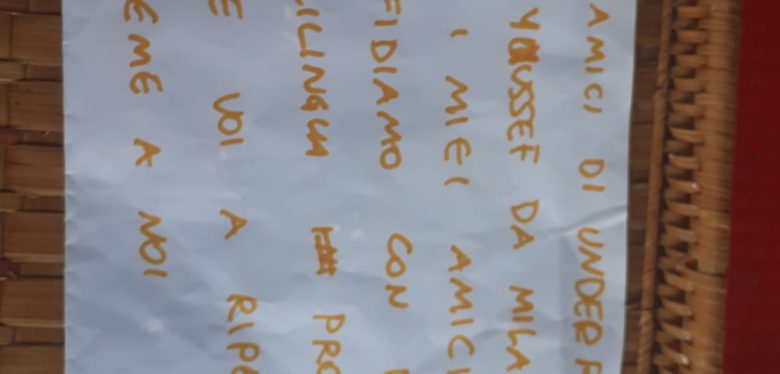 AMICI DI UNDER
YOUSSEF DA MILA
I MIEI AMICI
FIDIAMO CON
LILINGUA PRO
E VOI A RIPE
EME A NOI